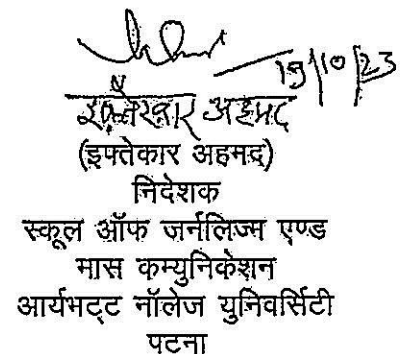 19/10/23
इफ्तेखार अहमद
(इफ्तेकार अहमद)
निदेशक
स्कूल ऑफ जर्नलिज्म एण्ड
मास कम्युनिकेशन
आर्यभट्ट नॉलेज युनिवर्सिटी
पटना